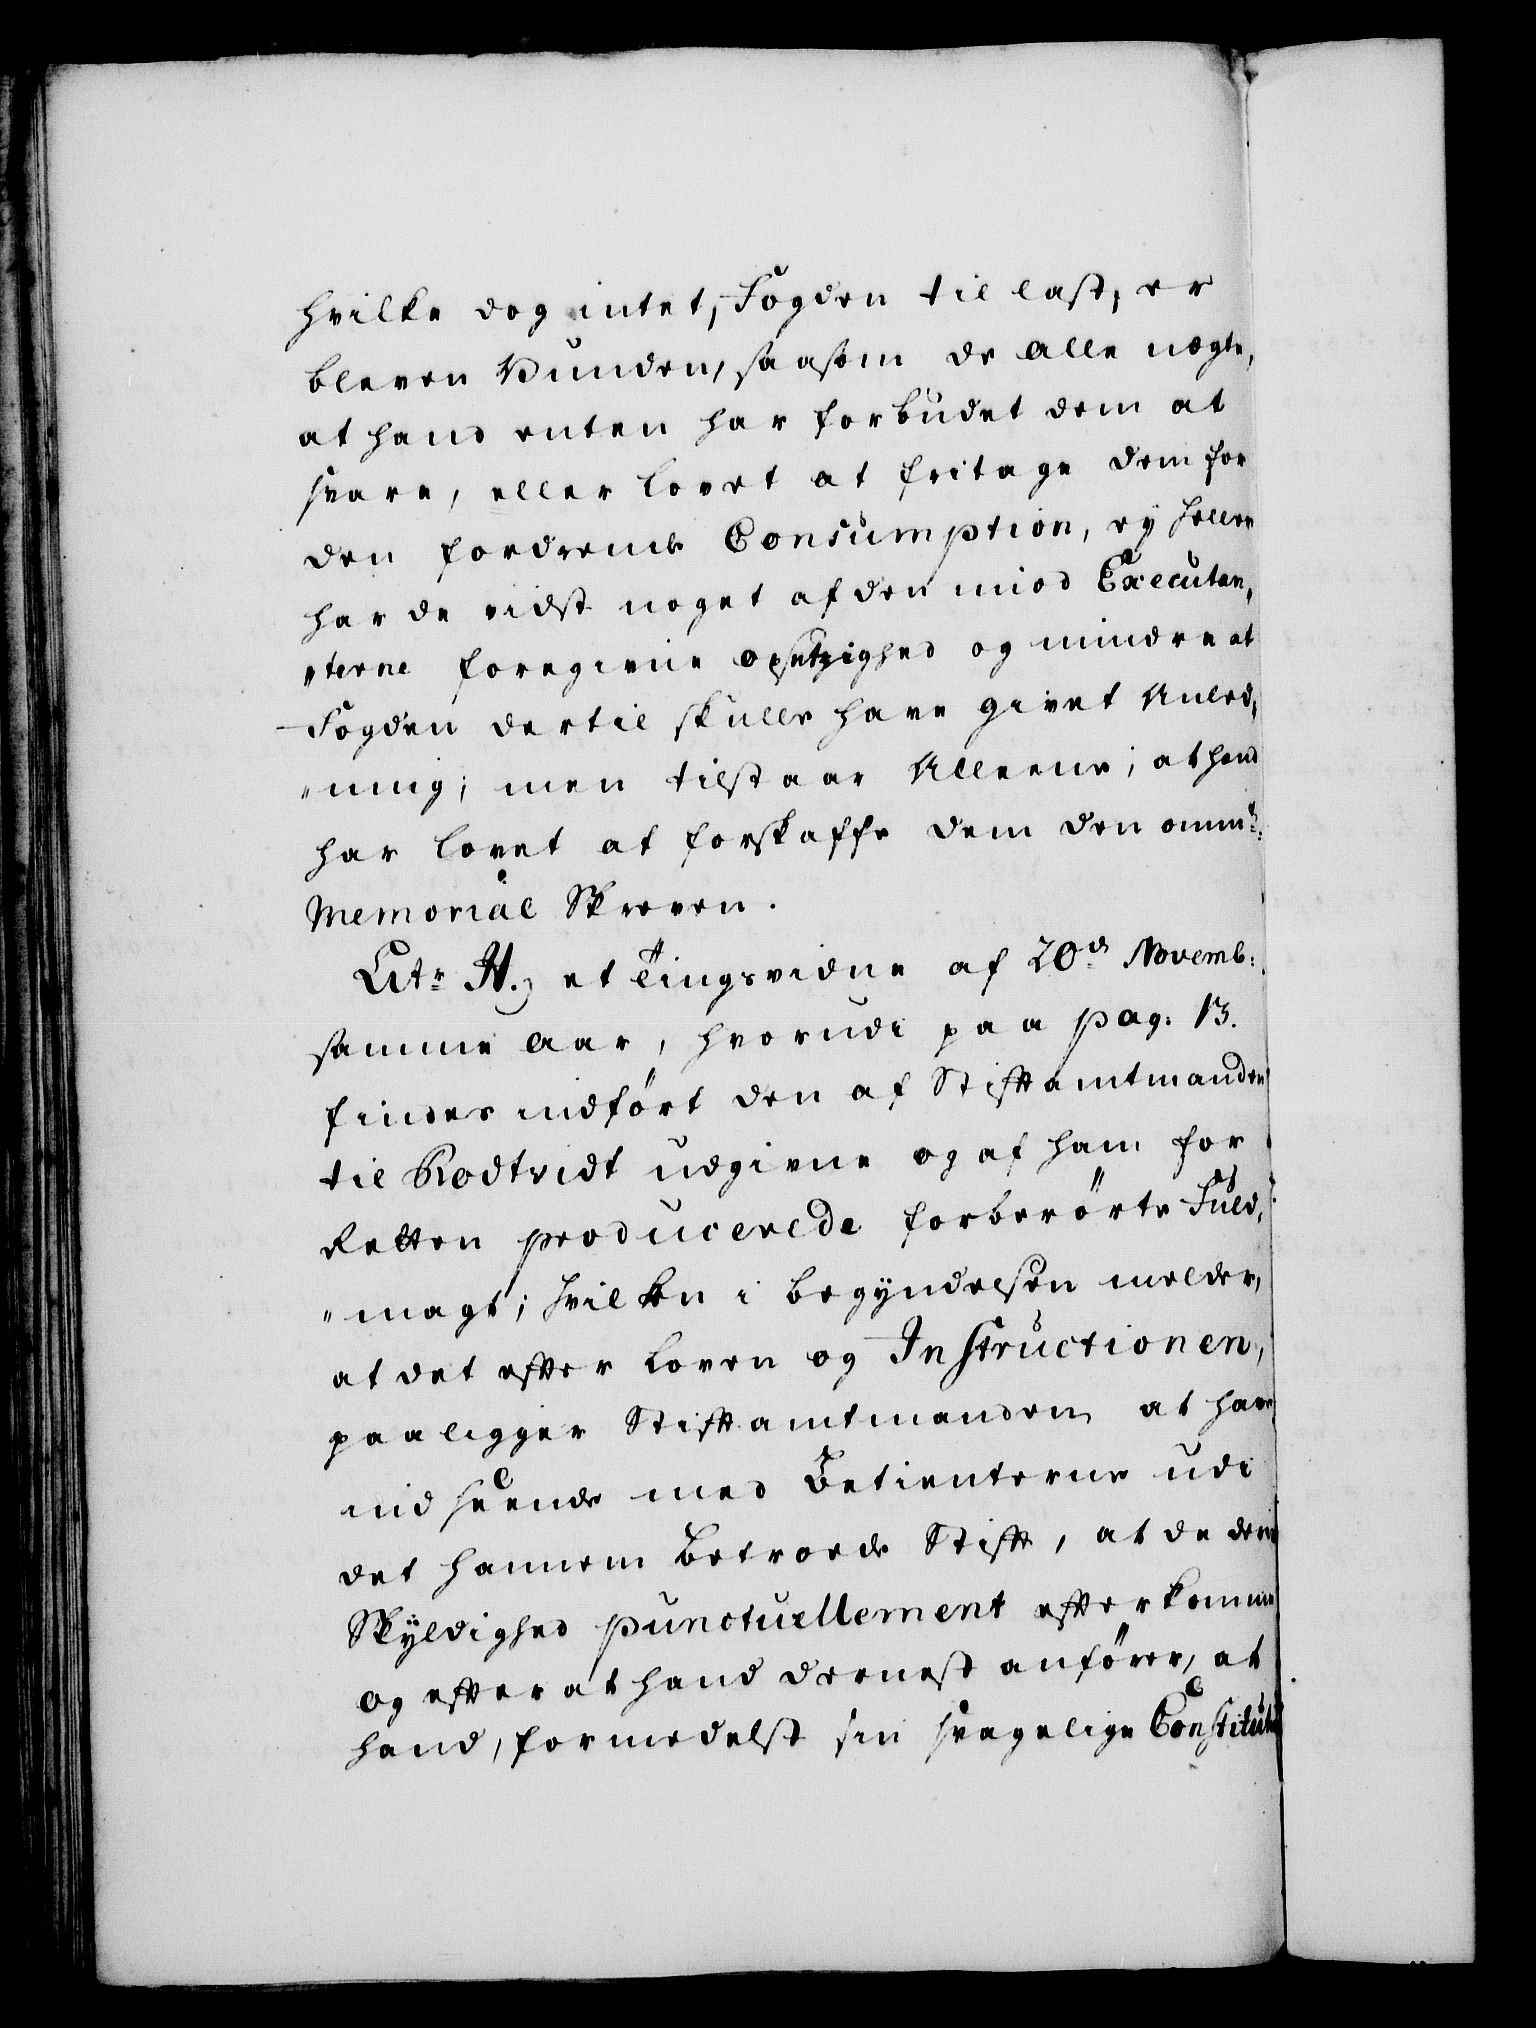 hvilke dog intet, Fogden til last, er
bleven Vunden, saasom de alle negte,
at hand enten har forbudet dem at
svare, eller lovet at fritage dem for
den fordrende Consumption, ey heller
har de vidst noget af den mod Executan,
„terne foregivne opsetzighed og mindre at
Fogden dertil skulle have givet Anled,
„ning; men tilstaar Alleene; at hand
har lovet at forskaffe dem den omm:te
Memorial Skreven.
Litr H. et Tingsvidne af 20de Novemb:
samme Aar, hvorudi paa pag: 13.
findes indført den af Stiftamtmanden
til Rodtvidt udgivne og af ham for
Retten producerede forberørte Fuld,
„magt; hvilken i begyndelsen melder,
at det efter loven og Instructionen,
paaligger Stiftamtmanden at have
indseende med Betienterne udi
det hannem Betroede Stift, at de deris
Skyldighed punctuellement efterkomme
og efter at hand dernest anfører, at
hand, formedelst sin svagelige Constituti